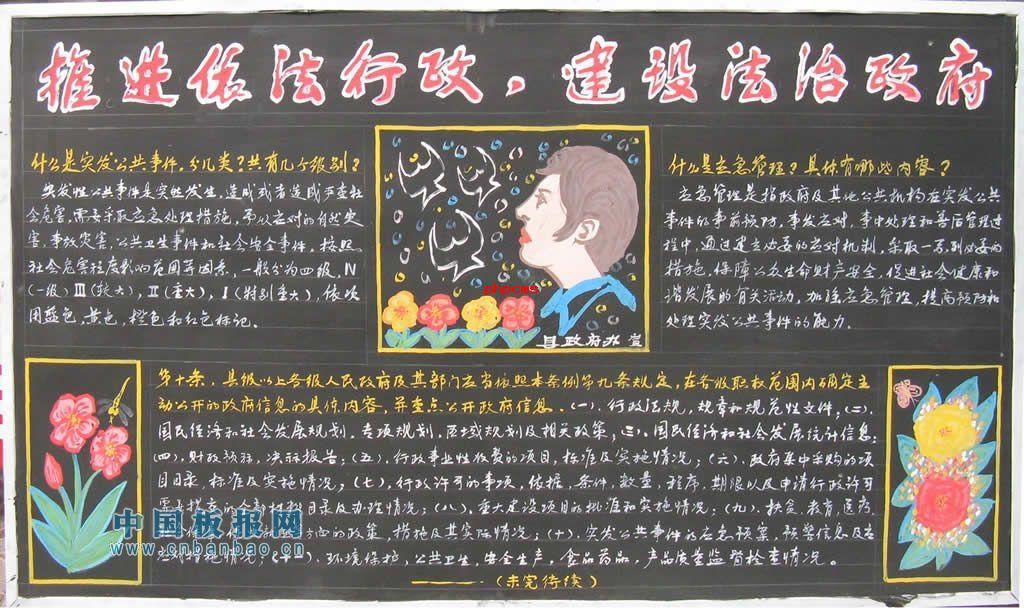 推进依法行政，建设法治政府
什么是突发公共事件，分几类？共有几个级别？
突发性公共事件是突然发生，造成或者造成严重社
会危害，需要采取应急处理措施，予以应对的自然灾
害，事故灾害，公共卫生事件和社会安全事件。按照
社会危害程度影响范围等因素，一般分为四级，Ⅳ
(一般)Ⅲ(较大)，Ⅱ(重大)，Ⅰ(特别重大)，依次
用蓝色，黄色，橙色和红色标记。
phpcms
县政府办 宣
什么是应急管理？具体有哪些内容？
应急管理是指政府及其他公共机构在突发公共
事件的事前预防，事发应对，事中处理和善后管理过
程中，通过建立必要的应对机制，采取一系列必要的
措施，保障公众生命财产安全，促进社会健康和
谐发展的有关活动，加强应急管理，提高预防和
处理突发公共事件的能力。
第十条，县级以上各级人民政府及其部门应当依照本条例第九条规定，在各级职权范围内确定主
动公开的政府信息的具体内容，并重点公开政府信息。(一)．行政法规，规章和规范性文件，(二)．
国民经济和社会发展规划，专项规划，区域规划及相关政策，(三)．国民经济和社会发展统计信息；
(四)，财政预算，决算报告；(五)，行政事业性收费的项目，标准及实施情况；(六)，政府集中采购的项
目目录，标准及实施情况；(七)，行政许可的事项，依据，条件，数量，程序，期限以及申请行政许可
需要提交的全部材料目录及办理情况；(八)，重大建设项目的批准和实施情况；(九)，扶贫，教育，医疗，
方面的政策，措施及其实际情况；(十)，突发公共事件的应急预案，预警信息及应
情况；(十一)，环境保护，公共卫生，安全生产，食品药品，产品质量监督检查情况。
(未完待续)
中国板报网
www.cnbanbao.cn